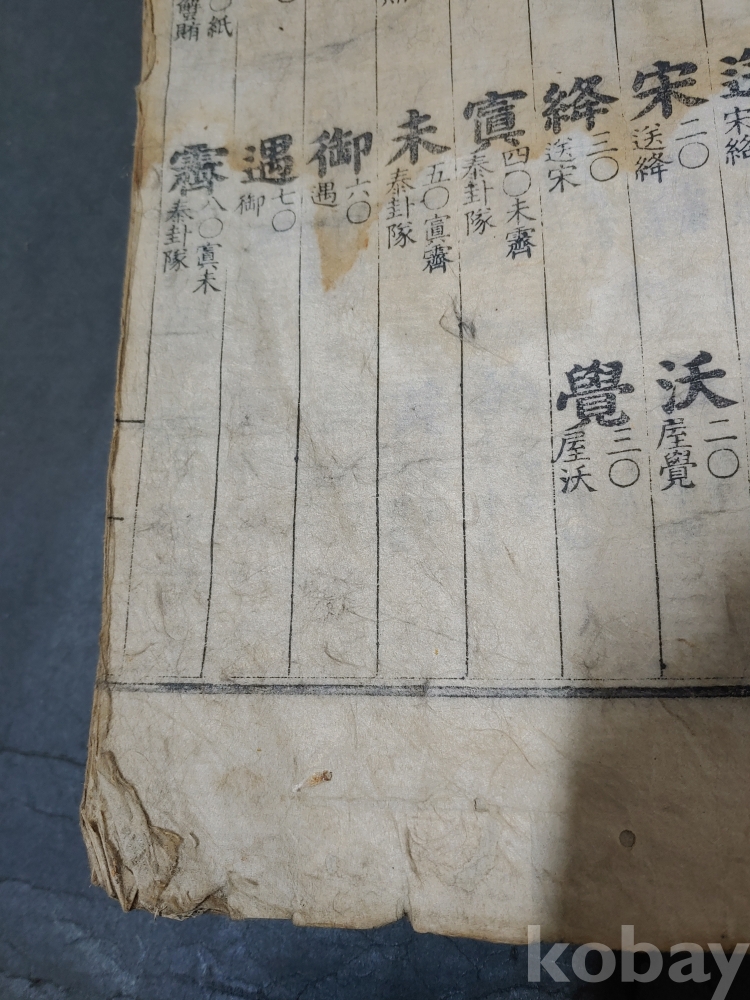 宋絳
宋 二〇 送絳 沃 二〇 屋覺
絳 三〇 送宋 覺 三〇 屋沃
寘 四〇未霽 泰卦隊
未 五〇寘霽 泰卦隊
御 六〇 遇
遇 七〇 御
〇紙 蟹賄 霽 八〇寘未 泰卦隊
kobay